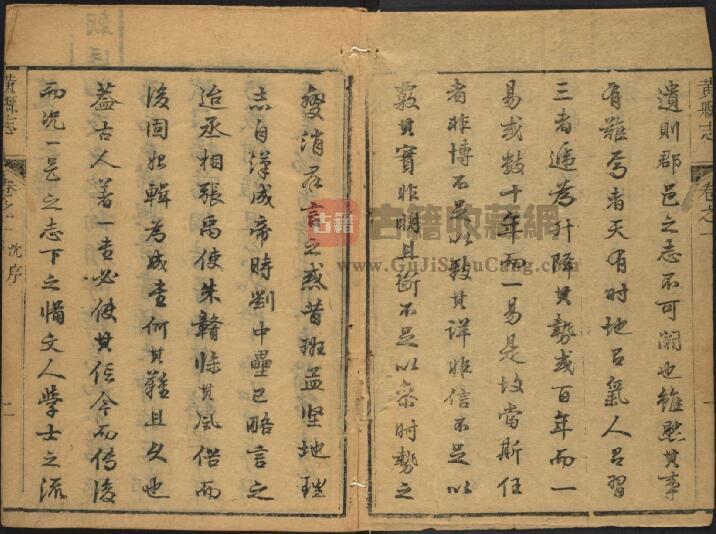 黃縣志
卷之一
遺則郡邑之志不可闕也雖然其事
有難焉者天有时地有氣人有習
三者遞為升降其勢或百年而一
易或数十年而一易是故當斯任
者非博不足以致其详非信不足以
覈其實非明且衡不足以察时勢之
變消羣言之惑昔班孟坚地理
志自漢成帝時劉中壘已略言之
迨丞相張禹使朱贛條其風俗而
後固始輯為成書何其難且久也
蓋古人著一書必使其信今而傳後
而況一邑之志下之備文人學士之流
黃縣志
卷之一
沈序
二
古籍
古籍收藏網
www.GuJiShouCang.com